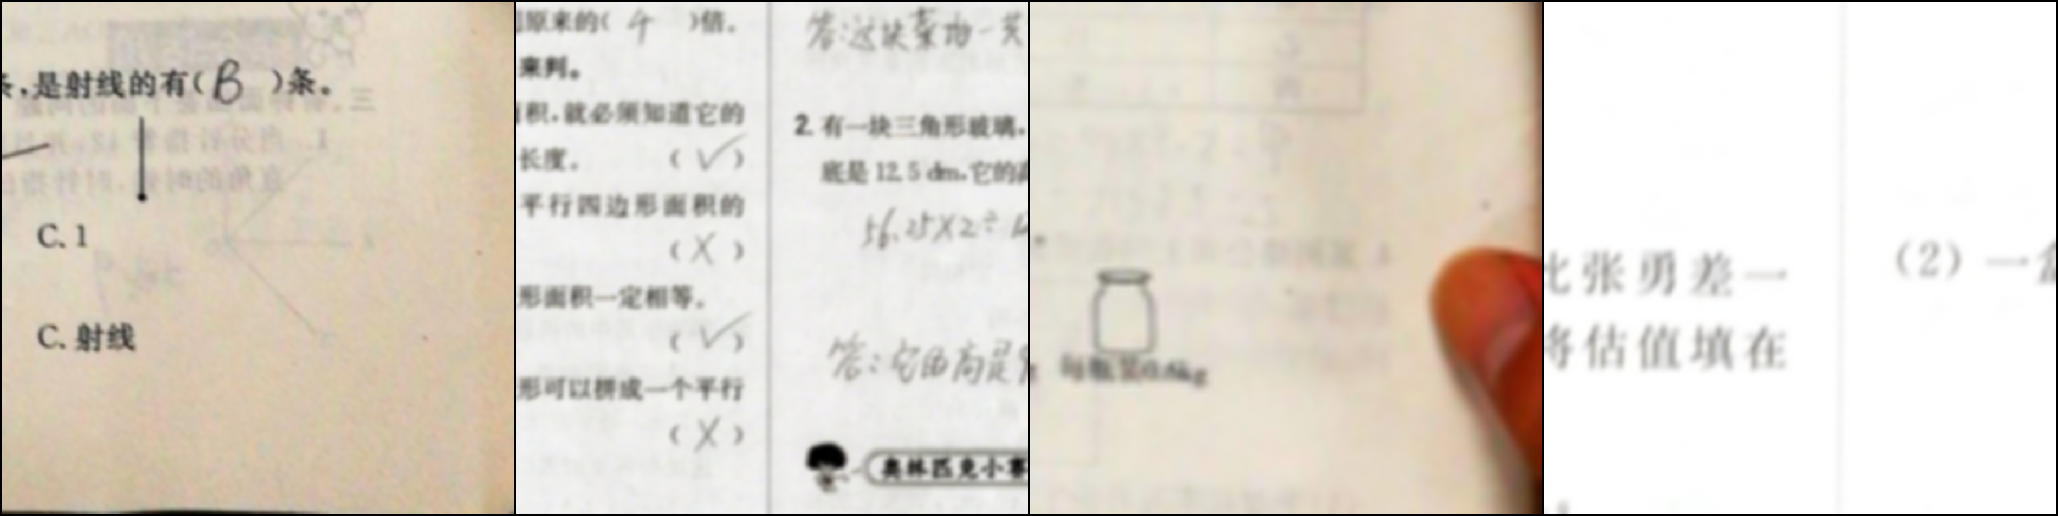 条,是射线的有( B )条。
C. 1
C. 射线
原来的( 4 )倍。
来判。
积,就必须知道它的
长度。 ( √ )
平行四边形面积的
( X )
形面积一定相等。
( √ )
形可以拼成一个平行
( X )
答:这块
2. 有一块三角形玻璃,
底是 12.5 dm,它的高
56.25X2÷
答:它的高是
奥林匹克小赛
比张勇差一
将估值填在
(2) 一盒